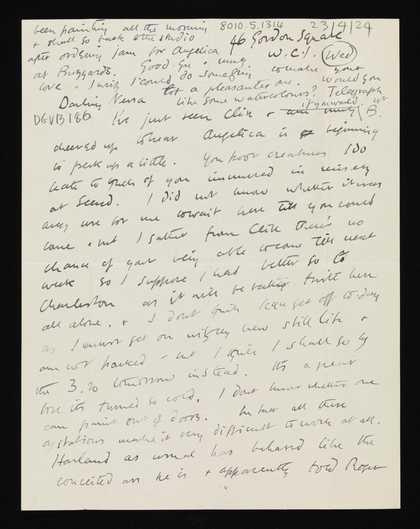 been painting all this morning 8010.5.1314 23/4/24
& shall go back to the studio 46 Gordon Square
after ordering jam for Angelica W.C.1. (Wed)
at Buszards. Good bye & my
love. I wish I could do something to make your
lot a pleasanter one. Would you
Darling Nessa like some watercolours? Telegraph
if you would.
DGVB186 I've just seen Clive & B.
cheered up to hear Angelica is beginning
to perk up a little. You poor creatures I do
hate to think of you immured in misery
at Seend. I did not know whether it was
any use for me to wait here till you could
come & but I gather from Clive there's no
chance of your being able to come till next
week so I suppose I had better go to
Charleston as it will be rather here
all alone. & I don't quite get off today
as I must get on with my new still life &
am not packed but I think I shall go by
the 3.20 tomorrow instead. Its a great
bore its turned so cold. I dont know whether one
can paint out of doors. In fact all these
agitations make it very difficult to work at all.
Harland as usual has behaved like the
conceited ass he is & apparently told Roger